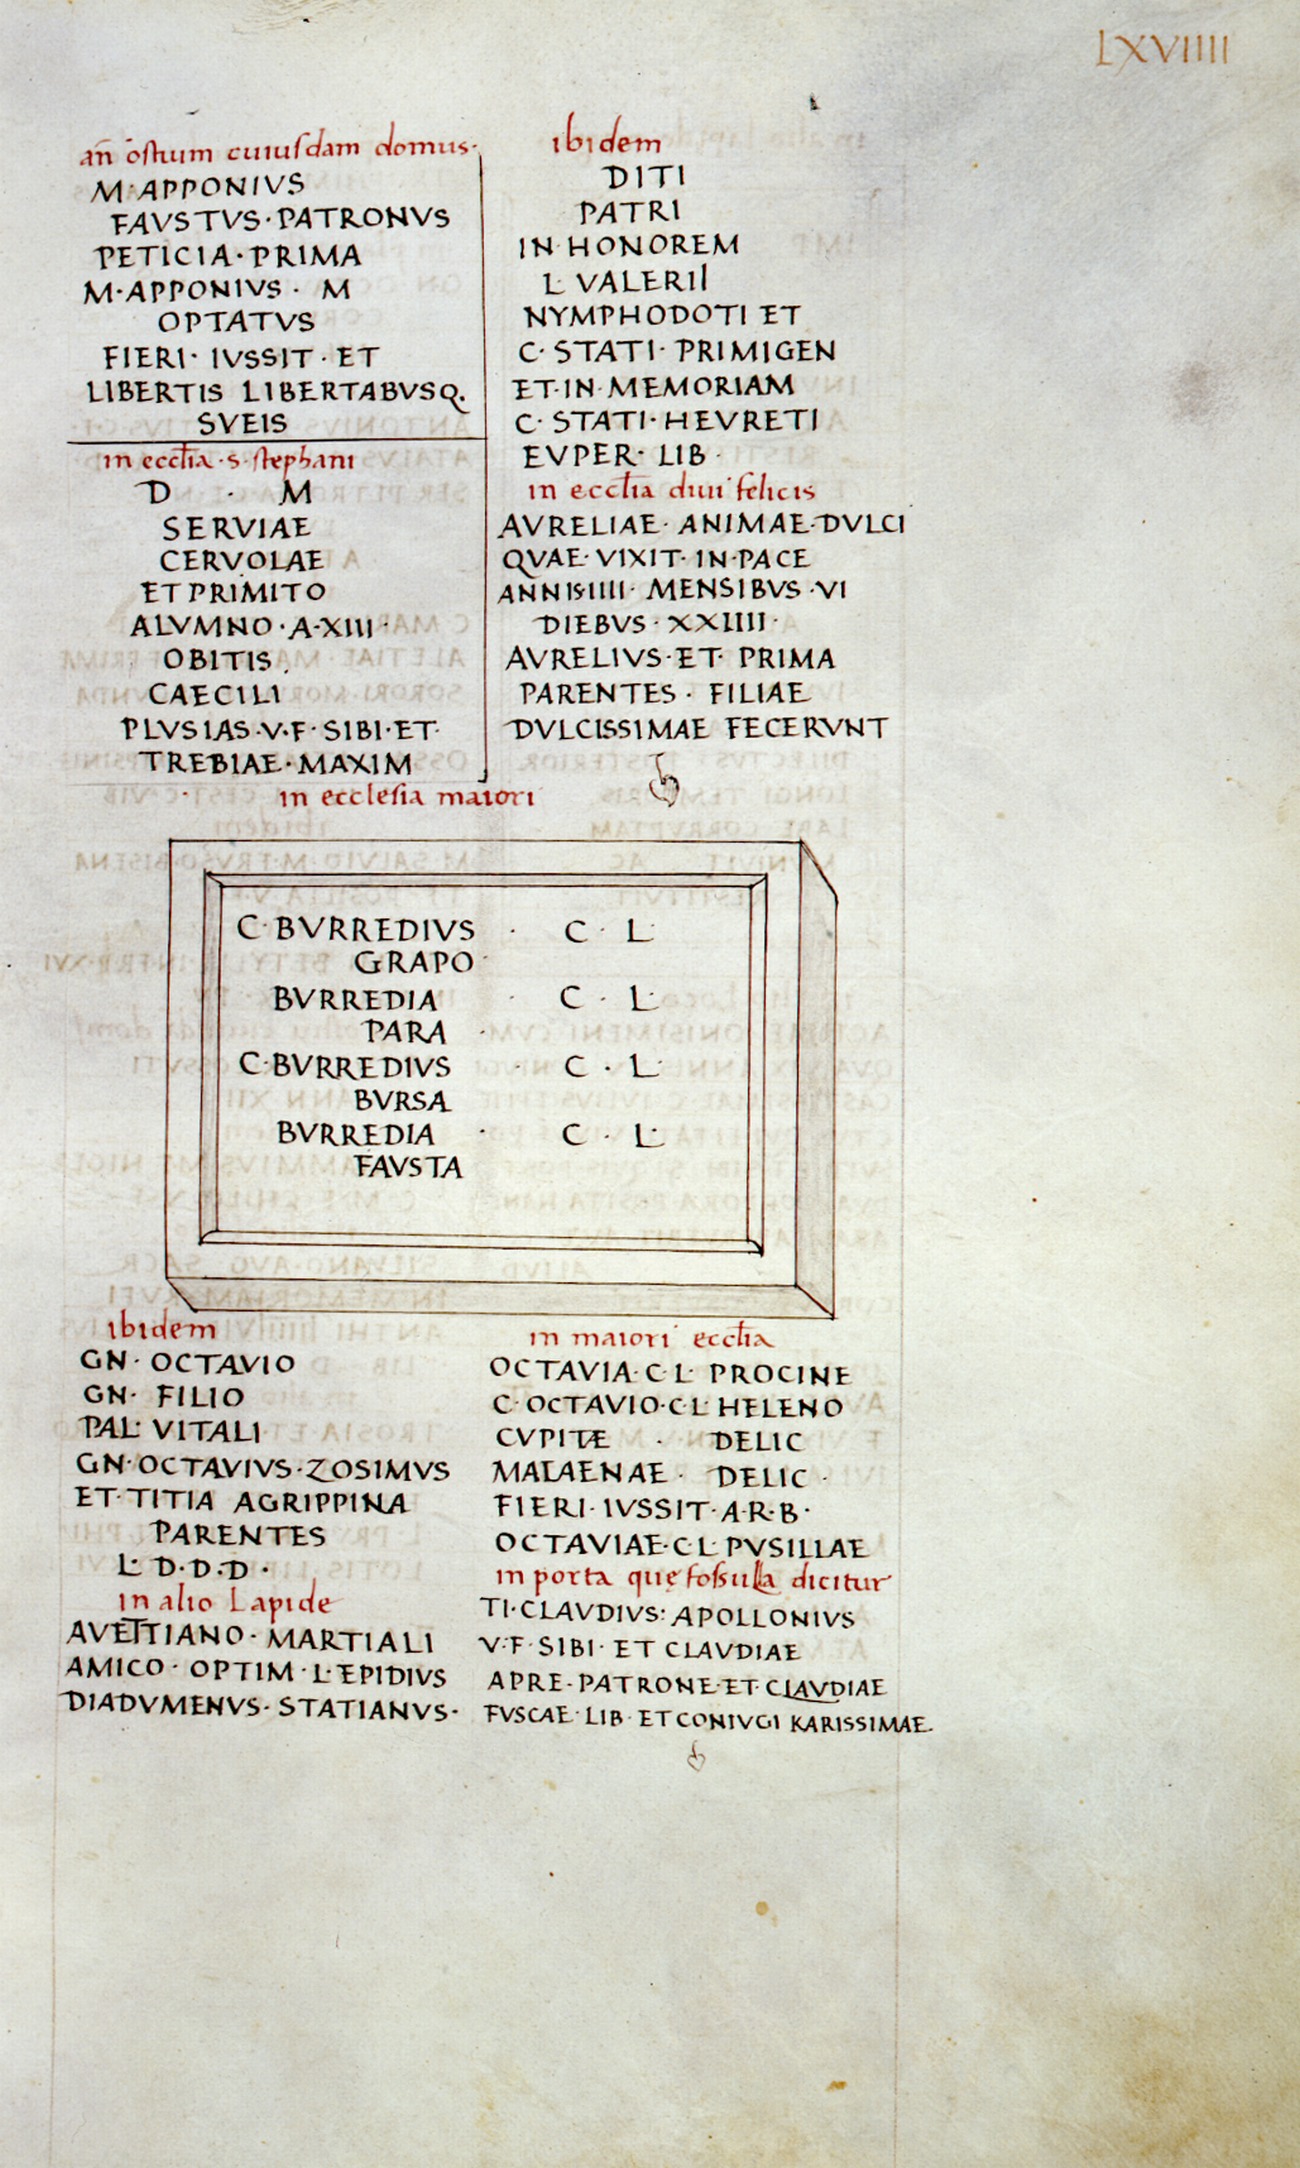 LXVIIII
an̄ ostium cuiusdam domus·
M·APPONIVS
FAVSTVS·PATRONVS
PETICIA·PRIMA
M·APPONIVS· M
OPTATVS
FIERI· IVSSIT· ET
LIBERTIS LIBERTABVSQ.
SVEIS
in eccl̄ia·s·stephani
D · M
SERVIAE
CERVOLAE
ET PRIMITO
ALVMNO·A·XIII·
OBITIS
CAECILI
PLVSIAS·V·F·SIBI·ET·
TREBIAE·MAXIM
ibidem
DITI
PATRI
IN HONOREM
L· VALERII
NYMPHODOTI ET
C· STATI· PRIMIGEN
ET·IN·MEMORIAM
C· STATI·HEVRETI
EVPER· LIB·
in eccl̄ia diui felicis
AVRELIAE· ANIMAE·DVLCI
QVAE·VIXIT·IN·PACE
ANNIS·IIII· MENSIBVS·VI
DIEBVS·XXIIII·
AVRELIVS·ET· PRIMA
PARENTES· FILIAE
DVLCISSIMAE FECERVNT
in ecclesia maiori
C·BVRREDIVS · C · L·
GRAPO·
BVRREDIA · C · L·
PARA ·
C·BVRREDIVS · C · L·
BVRSA
BVRREDIA · C · L·
FAVSTA
ibidem
GN· OCTAVIO
GN· FILIO
PAL· VITALI
GN·OCTAVIVS·ZOSIMVS
ET·TITIA AGRIPPINA
PARENTES
L· D·D·D·
in alio Lapide
AVETTIANO· MARTIALI
AMICO· OPTIM·L·EPIDIVS
DIADVMENVS· STATIANVS·
in maiori eccl̄ia
OCTAVIA·C·L· PROCINE
C·OCTAVIO·C·L·HELENO
CVPITÆ · DELIC
MALAENAE· DELIC·
FIERI·IVSSIT·A·R·B·
OCTAVIAE·C·L·PVSILLAE
in porta quę fossulla dicitur
TI·CLAVDIVS: APOLLONIVS
V·F·SIBI· ET CLAVDIAE
APRE·PATRONE·ET·CLAVDIAE
FVSCAE·LIB·ET CONIVGI KARISSIMAE.